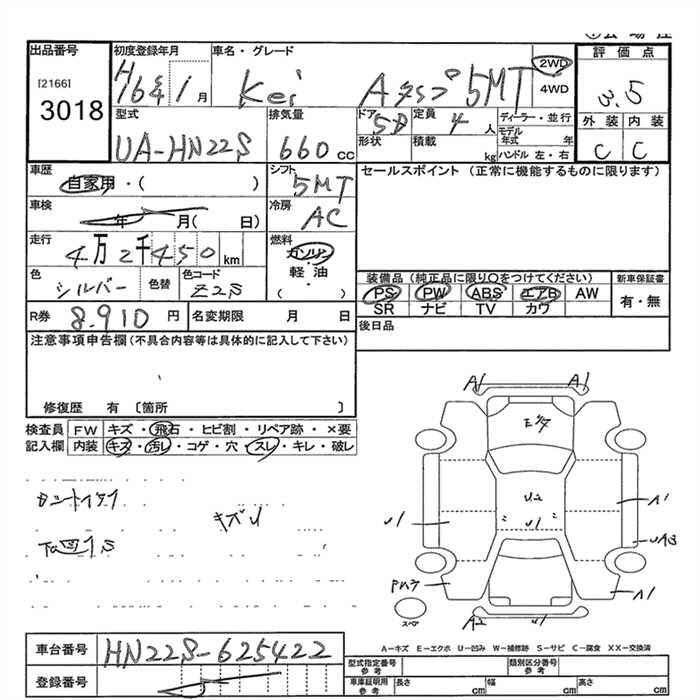 出品番号
[2166]
3018
初度登録年月
H16年1月
車名・グレード
Kei Aタイプ 5MT
2WD
4WD
評価点
3.5
外装 内装
C C
型式
UA-HN22S
排気量
660 cc
ドア 5D
定員 4人
形状
積載 kg
ディーラー・並行
モデル年式 年
ハンドル 左・右
車歴
自家用・( )
シフト
5MT
セールスポイント (正常に機能するものに限ります)
車検
年 月( 日)
冷房
AC
走行
4万2千450 km
燃料
ガソリン
軽・油
( )
色
シルバー
色替
色コード
Z2S
装備品 (純正品に限り○をつけてください)
新車保証書
PS PW ABS エアB AW
有・無
SR ナビ TV カワ
R券
8.910 円
名変期限 月 日
後日品
注意事項申告欄 (不具合内容等は具体的に記入して下さい)
修復歴 有 〔箇所 〕
検査員
記入欄
FW
キズ・飛石・ヒビ割・リペア跡・×要
内装
キズ・汚レ・コゲ・穴・スレ・キレ・破レ
キズU
下回りS
A1 A1
U2
U1
U1
A1
UA3
A1
A2
U1
スペア
A-キズ E-エクボ U-凹み W-補修跡 S-サビ C-腐食 XX-交換済
車台番号
HN22S-625422
登録番号
型式指定番号
参考
類別区分番号
参考
車庫証明用
参考
長さ cm
幅 cm
高さ cm